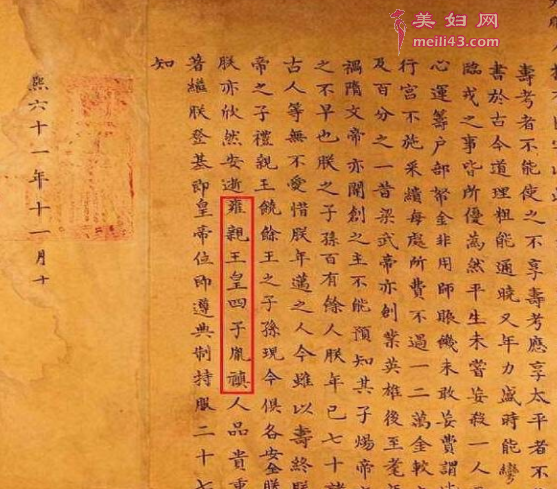 美妇网
meili43.com
壽考者不能使之不享壽考應享太平者不
書於古今道理粗能通曉又年力盛時能彎
臨戎之事皆所優為然平生未嘗妄殺一人
心運籌户部帑金非用師賑饑未敢妄費謂
行宮不施采繢每處所費不過一二萬金較
及百分之一昔梁武帝亦創業英雄後至耄
禍隋文帝亦開創之主不能預知其子煬帝
之不早也朕之子孫百有餘人朕年已七十諸
古人等無不愛惜朕年邁之人今雖以壽終朕
帝之子禮親王饒餘王之子孫現今俱各安全朕
朕亦欣然安逝雍親王皇四子胤禛人品貴重
著繼朕登基即皇帝位即遵典制持服二十七
知
熙六十一年十一月十